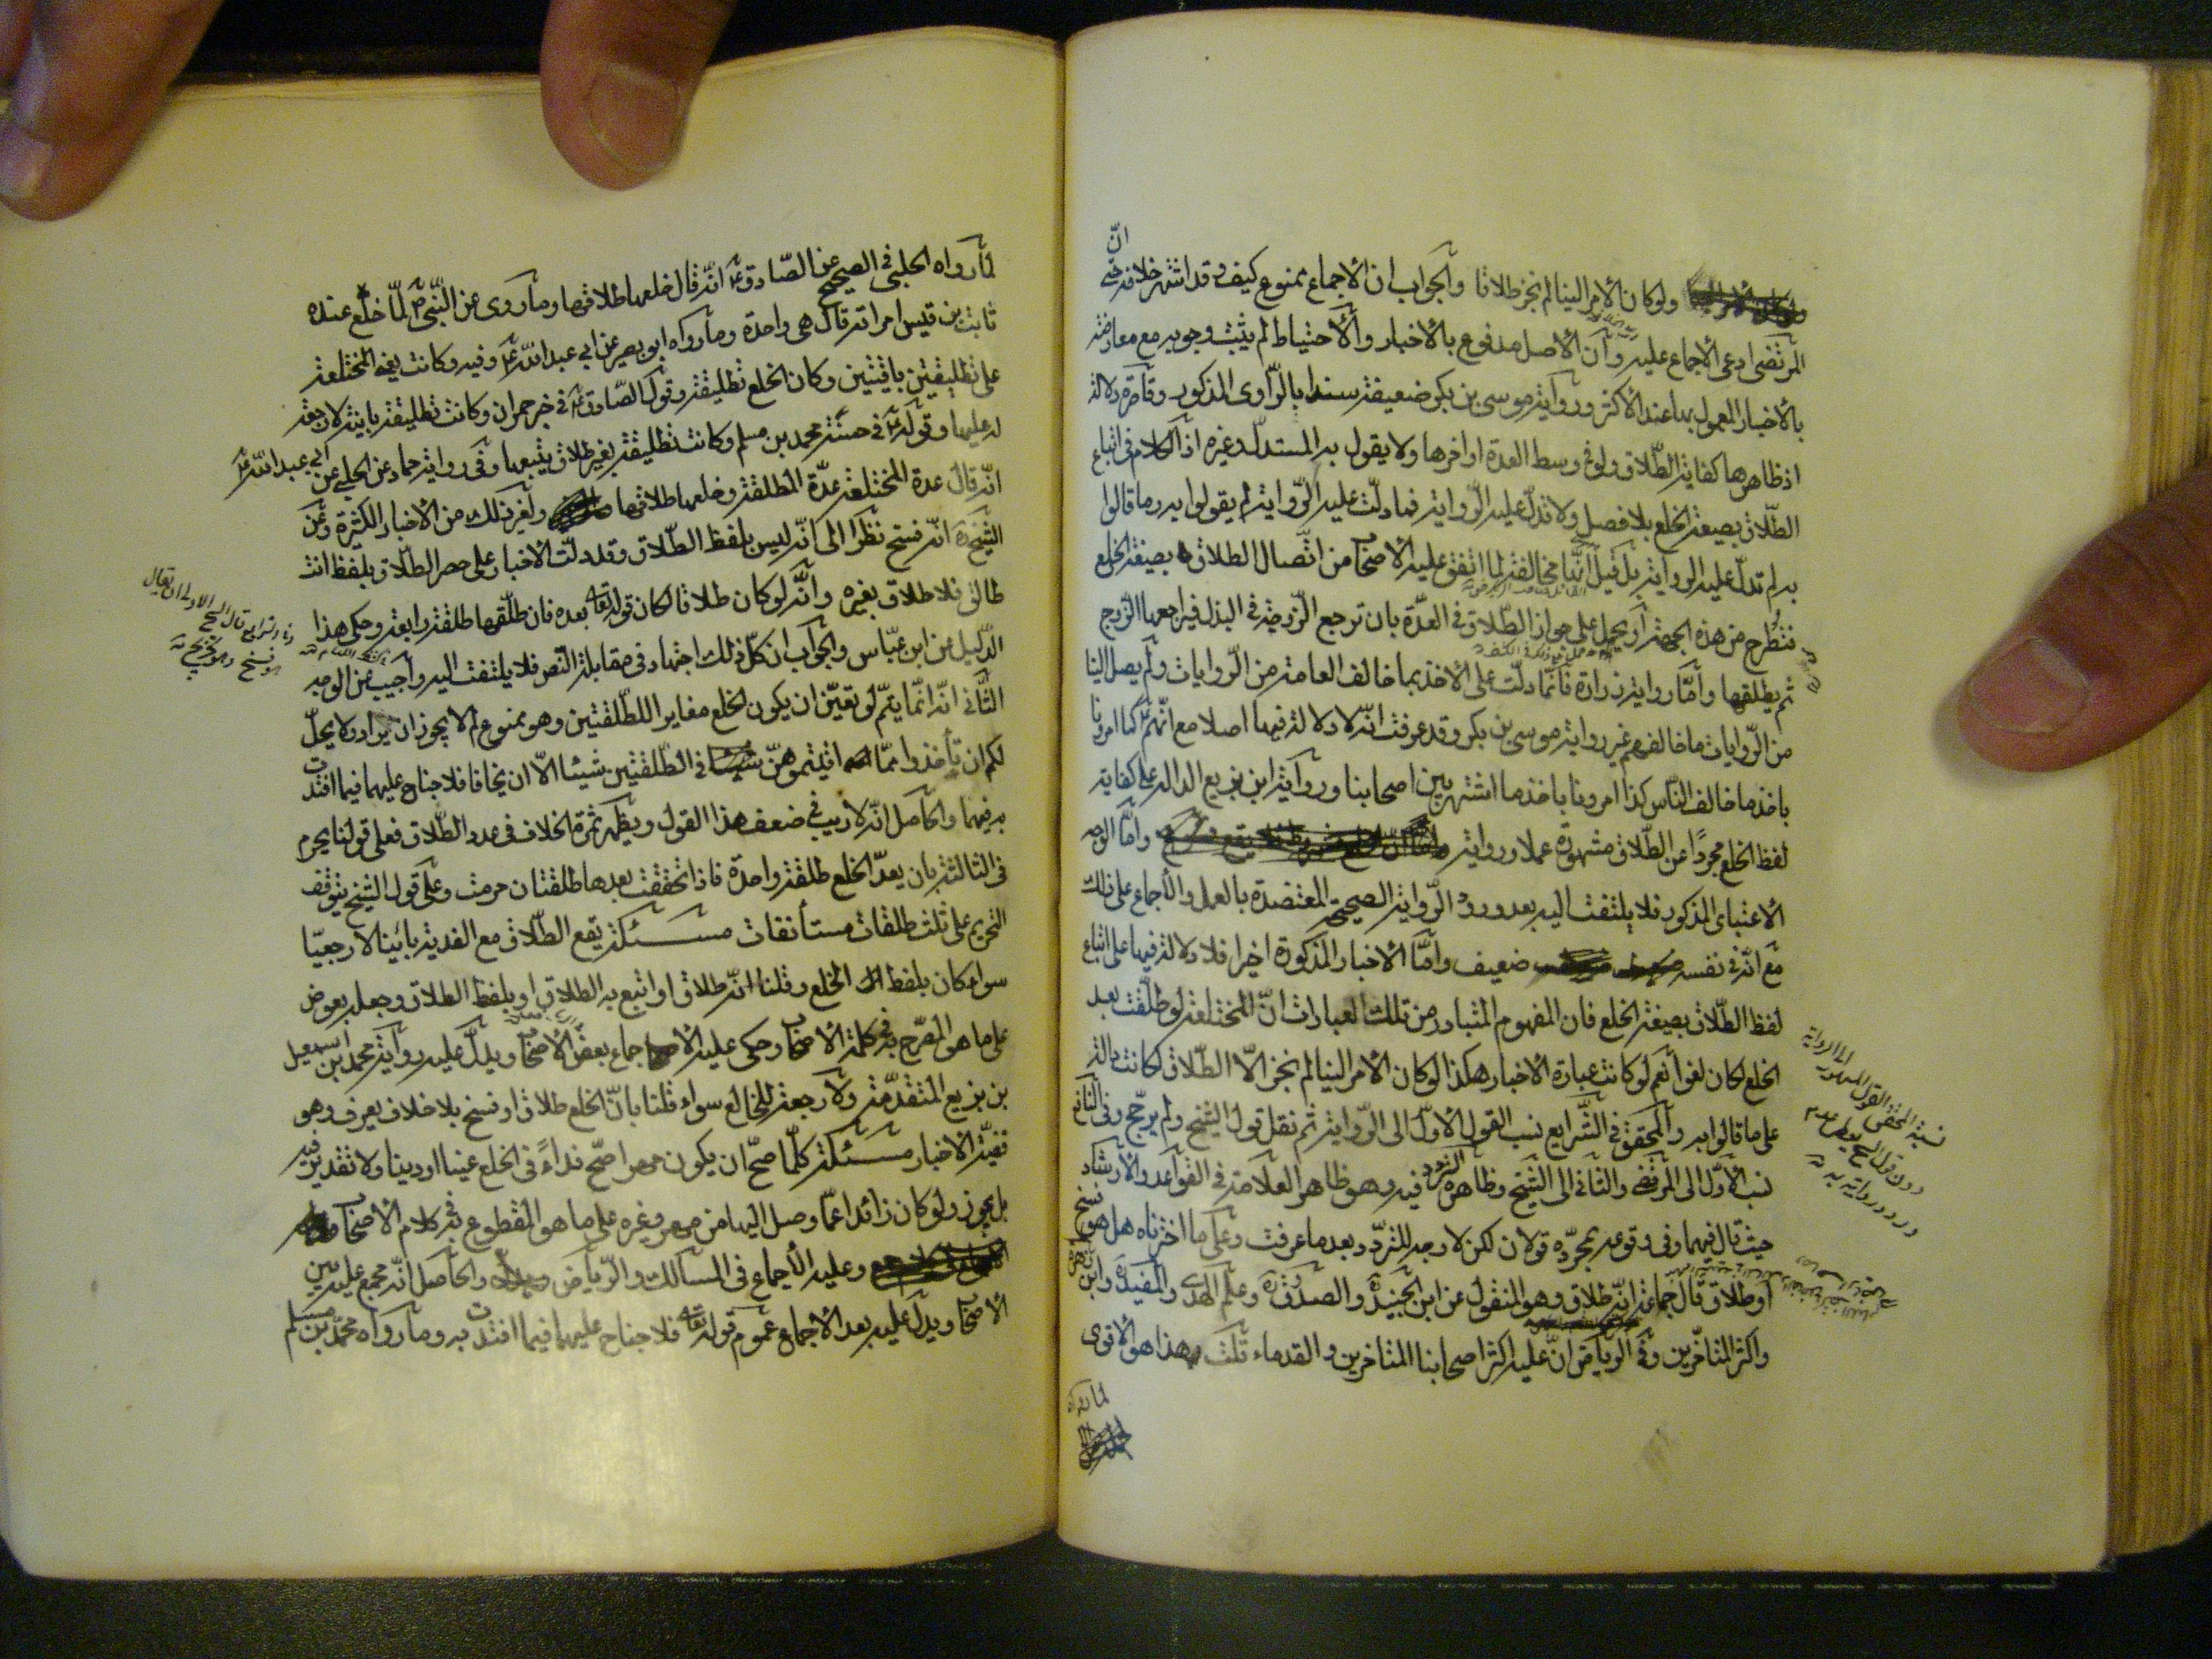 ولو كان الامر الينا لم نجز طلاقا والجواب ان الاجماع ممنوع كيف وقد اشتهر خلافه حتى انّ
المرتضى ادعى الاجماع عليه وان الاصل مدفوع بالاخبار والاحتياط لم يثبت وجوبه مع معارضته
بالاخبار المعمول بها عند الاكثر ورواية موسى بن بكر ضعيفة سندا بالراوى المذكور وقاصرة دلالة
اذ ظاهرها كفاية الطّلاق ولو فى وسط العدة او اخرها ولا يقول به المستدلّ وغيره اذ الكلام فى اتباع
الطّلاق بصيغة الخلع بلا فصل ولا تدلّ عليه الرّواية فما دلّت عليه الرّواية لم يقولوا به وما قالوا
به لم تدلّ عليه الرواية بل قيل انّها مخالفة لما اتفق عليه الاصحاب من اتّصال الطلاق بصيغة الخلع
فتطرح من هذه الجهة او يحمل على جواز الطّلاق فى العدّة بان ترجع الزوجة فى البذل فيراجعها الزوج
ثم يطلقها وامّا رواية زرارة فانّما دلّت على الاخذ بما خالف العامة من الرّوايات ولم يصل الينا
من الرّوايات ما خالفهم غير رواية موسى بن بكر وقد عرفت انّه لا دلالة فيها اصلا مع انّهم كما امرونا
باخذ ما خالف النّاس كذا امرونا باخذ ما اشتهر بين اصحابنا ورواية ابن بزيع الدالة على كفاية
لفظ الخلع مجردًا عن الطّلاق مشهورة عملا ورواية وامّا الوجه
الاعتبارى المذكور فلا يلتفت اليه بعد ورود الرّواية الصحيحة المعتضدة بالعمل والاجماع على ذلك
مع انّه فى نفسه ضعيف وامّا الاخبار المذكورة اخيرا فلا دلالة فيها على اتباع
لفظ الطّلاق بصيغة الخلع فان المفهوم المتبادر من تلك العبارات انّ المختلعة لو طلّقت بعد
الخلع لكان لغوا نعم لو كانت عبارة الاخبار هكذا لو كان الامر الينا لم نجز الّا الطّلاق لكانت دالة
على ما قالوا به والمحقق فى الشّرايع نسب القول الاوّل الى الرّواية ثم نقل قول الشيخ ولم يرجّح وفى النافع
نسب الاوّل الى المرتضى والثانى الى الشيخ وظاهره التردد فيه وهو ظاهر العلامة فى القواعد والارشاد
حيث قال فيهما وفى وقوعه بمجرّده قولان لكن لا وجه للتردّد بعد ما عرفت وعلى ما اخترناه هل هو فسخ
او طلاق قال جماعة انّه طلاق وهو المنقول عن ابن الجنيد والصدوق وعلم الهدى والمفيد وابن
واكثر المتاخّرين وفى الرياض انّ عليه اكثر اصحابنا المتاخرين والقدماء قلت وهذا هو الاقوى
لما رواه
لما رواه الحلبى فى الصحيح عن الصّادق انّه قال خلعها طلاقها وما روى عن النّبى لمّا خلع عنده
ثابت بن قيس امراته قال هى واحدة وما رواه ابو بصير عن ابى عبد الله وفيه وكانت يعنى المختلعة
على تطليقتين باقيتين وكان الخلع تطليقة وقول الصّادق فى خبر حمران وكانت تطليقة باينة لا رجعة
له عليها وقوله فى حسنة محمد بن مسلم وكانت تطليقة بغير طلاق يتبعها وفى رواية حماد عن الحلبى عن ابى عبد الله
انّه قال عدة المختلعة عدّة المطلقة وخلعها طلاقها ولغير ذلك من الاخبار الكثيرة وعن
الشيخ انّه فسخ نظرا الى انّه ليس بلفظ الطّلاق وقد دلّت الاخبار على حصر الطّلاق بلفظ انت
طالق فلا طلاق بغيره وانّه لو كان طلاقا لكان قوله تعالى بعده فان طلّقها طلقة رابعة وحكى هذا
الدّليل عن ابن عبّاس والجواب ان كلّ ذلك اجتهاد فى مقابلة النّص فلا يلتفت اليه واجيب عن الوجه
الثّانى انّه انّما يتمّ لو تعيّن ان يكون الخلع مغايرا للطّلقتين وهو ممنوع لم لا يجوز ان يراد ولا يحلّ
لكم ان تأخذوا ممّا اتيتموهنّ فى الطّلقتين شيئا الّا ان يخافا فلا جناح عليهما فيما افتدت
به فيهما والحاصل انّه لا ريب فى ضعف هذا القول ويظهر ثمرة الخلاف فى عدد الطّلاق فعلى قولنا يحرم
فى الثالثة بان يعدّ الخلع طلقة واحدة فاذا تحققت بعدها طلقتان حرمت وعلى قول الشيخ يتوقف
التحريم على ثلث طلقات مستأنفات مسئلة يقع الطّلاق مع الفدية باينا لا رجعيّا
سواء كان بلفظ الخلع وقلنا انّه طلاق او اتبع به الطلاق او بلفظ الطلاق وجعله بعوض
على ما هو المصرّح به فى كلمة الاصحاب وحكى عليه اجماع بعض الاصحاب ويدلّ عليه رواية محمد بن اسمعيل
بن بزيع المتقدّمة ولا رجعة للخالع سواء قلنا بانّ الخلع طلاق او فسخ بلا خلاف يعرف وهو
قضيّة الاخبار مسئلة كلّما صحّ ان يكون مهرا صحّ فداءً فى الخلع عينا او دينا ولا تقدير فيه
بل يجوز ولو كان زائدا عمّا وصل اليها من مهر وغيره على ما هو المقطوع به فى كلام الاصحاب
وعليه الاجماع فى المسالك والرّياض والحاصل انّه مجمع عليه بين
الاصحاب ويدلّ عليه بعد الاجماع عموم قوله تعالى فلا جناح عليهما فيما افتدت به وما رواه محمّد بن مسلم